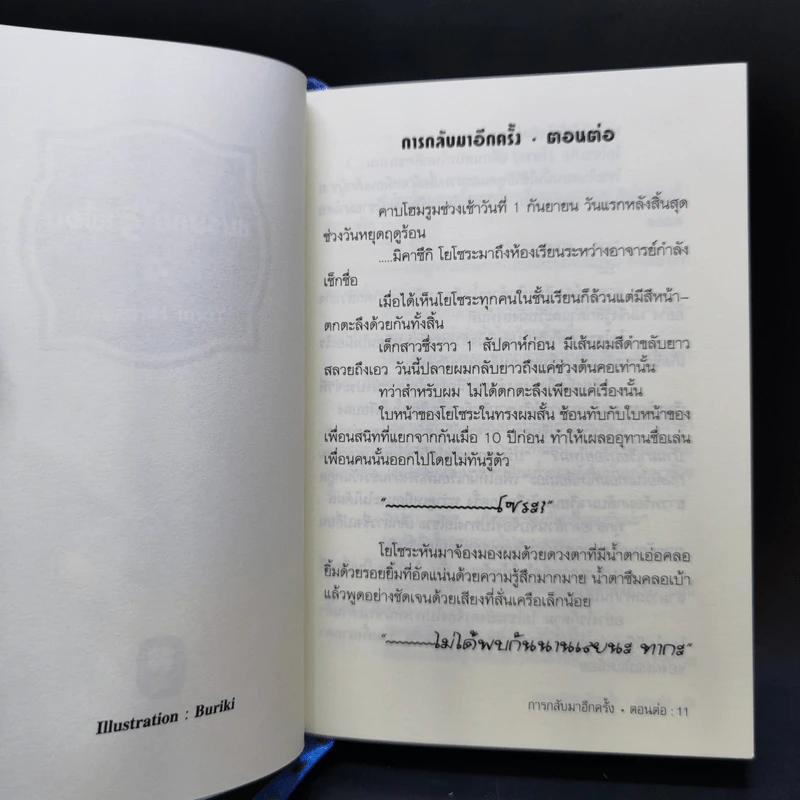 Illustration : Buriki
การกลับมาอีกครั้ง • ตอนต่อ
คาบโฮมรูมช่วงเช้าวันที่ 1 กันยายน วันแรกหลังสิ้นสุด
ช่วงวันหยุดฤดูร้อน
.....มิคาซึกิ โยโซระมาถึงห้องเรียนระหว่างอาจารย์กำลัง
เช็กชื่อ
เมื่อได้เห็นโยโซระทุกคนในชั้นเรียนก็ล้วนแต่มีสีหน้า-
ตกตะลึงด้วยกันทั้งสิ้น
เด็กสาวซึ่งราว 1 สัปดาห์ก่อน มีเส้นผมสีดำขลับยาว
สลวยถึงเอว วันนี้ปลายผมกลับยาวถึงแค่ช่วงต้นคอเท่านั้น
ทว่าสำหรับผม ไม่ได้ตกตะลึงเพียงแค่เรื่องนั้น
ใบหน้าของโยโซระในทรงผมสั้น ซ้อนทับกับใบหน้าของ
เพื่อนสนิทที่แยกจากกันเมื่อ 10 ปีก่อน ทำให้เผลออุทานชื่อเล่น
เพื่อนคนนั้นออกไปโดยไม่ทันรู้ตัว
"~~~~~~~~โซระ!"
โยโซระหันมาจ้องมองผมด้วยดวงตาที่มีน้ำตาเอ่อคลอ
ยิ้มด้วยรอยยิ้มที่อัดแน่นด้วยความรู้สึกมากมาย น้ำตาซึมคลอเบ้า
แล้วพูดอย่างชัดเจนด้วยเสียงที่สั่นเครือเล็กน้อย
"~~~~~ไม่ได้พบกันนานเลยนะ ทากะ"
การกลับมาอีกครั้ง • ตอนต่อ : 11